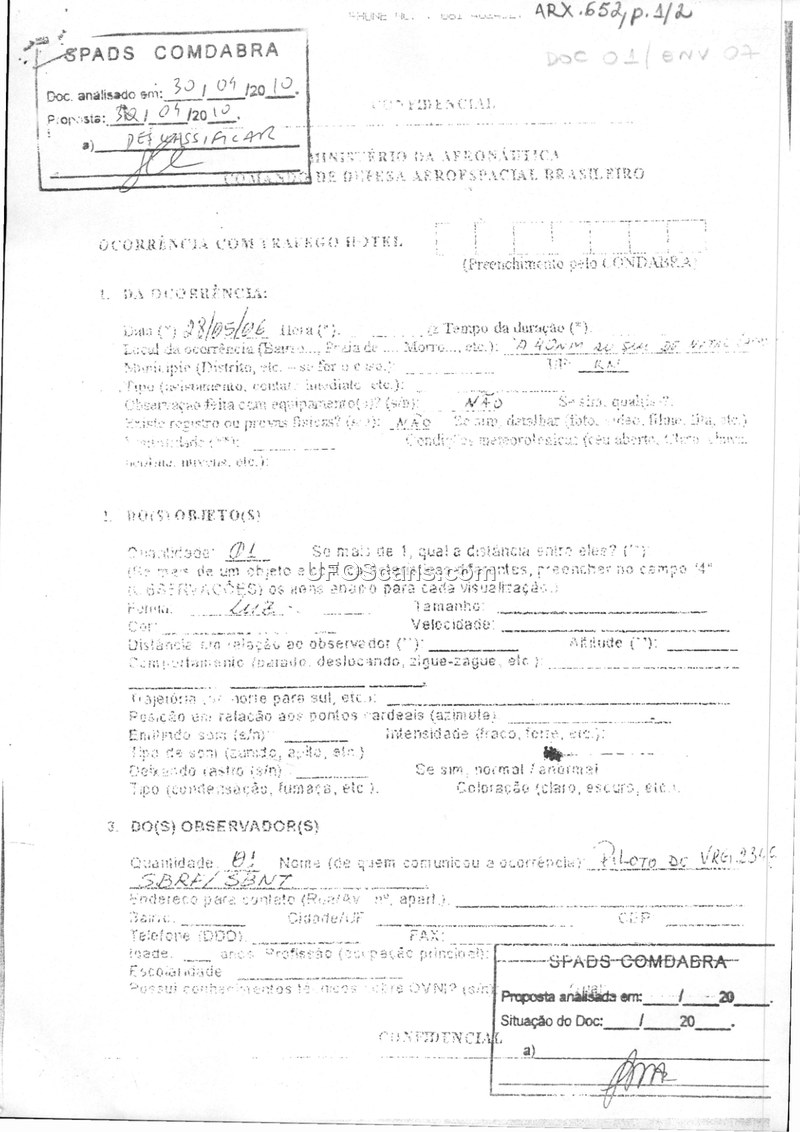 ARX.652, p. 1/2
DOC 01/ ENV 07
SPADS COMDABRA
Doc. analisado em: 30 / 04 /20 10.
Proposta: 30/ 04 /20 10.
a) DESCLASSIFICAR
CONFIDENCIAL
MINISTÉRIO DA AERONÁUTICA
COMANDO DE DEFESA AEROESPACIAL BRASILEIRO
OCORRÊNCIA COM TRAFEGO HOTEL
(Preenchimento pelo CONDABRA)
1. DA OCORRÊNCIA:
Data (*) 28/05/06 Hora (*): Tempo da duração (*)
Local da ocorrência (Bairro..., Praia de ..., Morro..., etc.): A 40NM AO SUL DE NATAL
Município (Distrito, etc. – se for o caso): UF: RN
Tipo (avistamento, contato imediato, etc.):
Observação feita com equipamento(s)? (s/n): NÃO Se sim, qual(is)?:
Existe registro ou provas físicas? (s/n): NÃO Se sim, detalhar (foto, vídeo, filme, fita, etc.)
Condições meteorológicas: (céu aberto, Claro, chuva,
neblina, nuvens, etc.):
2. DO(S) OBJETO(S)
Quantidade: 01 Se mais de 1, qual a distância entre eles? (**)
(Se mais de um objeto diferentes, preencher no campo "4"
(OBSERVAÇÕES) os itens abaixo para cada visualização.)
UFOScans.com
Forma: LUZ Tamanho:
Cor: Velocidade:
Distância em relação ao observador (**): Altitude (**):
Comportamento (parado, deslocando, zigue-zague, etc.):
Trajetória (de norte para sul, etc.):
Posição em relação aos pontos cardeais (azimute)
Emitindo som (s/n): Intensidade (fraco, forte, etc.):
Tipo de som (zunido, apito, etc.)
Deixando rastro (s/n) Se sim, normal / anormal
Tipo (condensação, fumaça, etc.). Coloração (claro, escuro, etc.).
3. DO(S) OBSERVADOR(S)
Quantidade: 01 Nome (de quem comunicou a ocorrência): PILOTO DO VRG
SBRF/ SBNT
Endereço para contato (Rua/Av., nº, apart.):
Bairro: Cidade/UF CEP
Telefone (DDD) FAX:
Idade: anos. Profissão (ocupação principal):
Escolaridade
Possui conhecimentos técnicos sobre OVNI? (s/n)
CONFIDENCIAL
SPADS COMDABRA
Proposta analisada em: / 20 .
Situação do Doc: / 20 .
a)